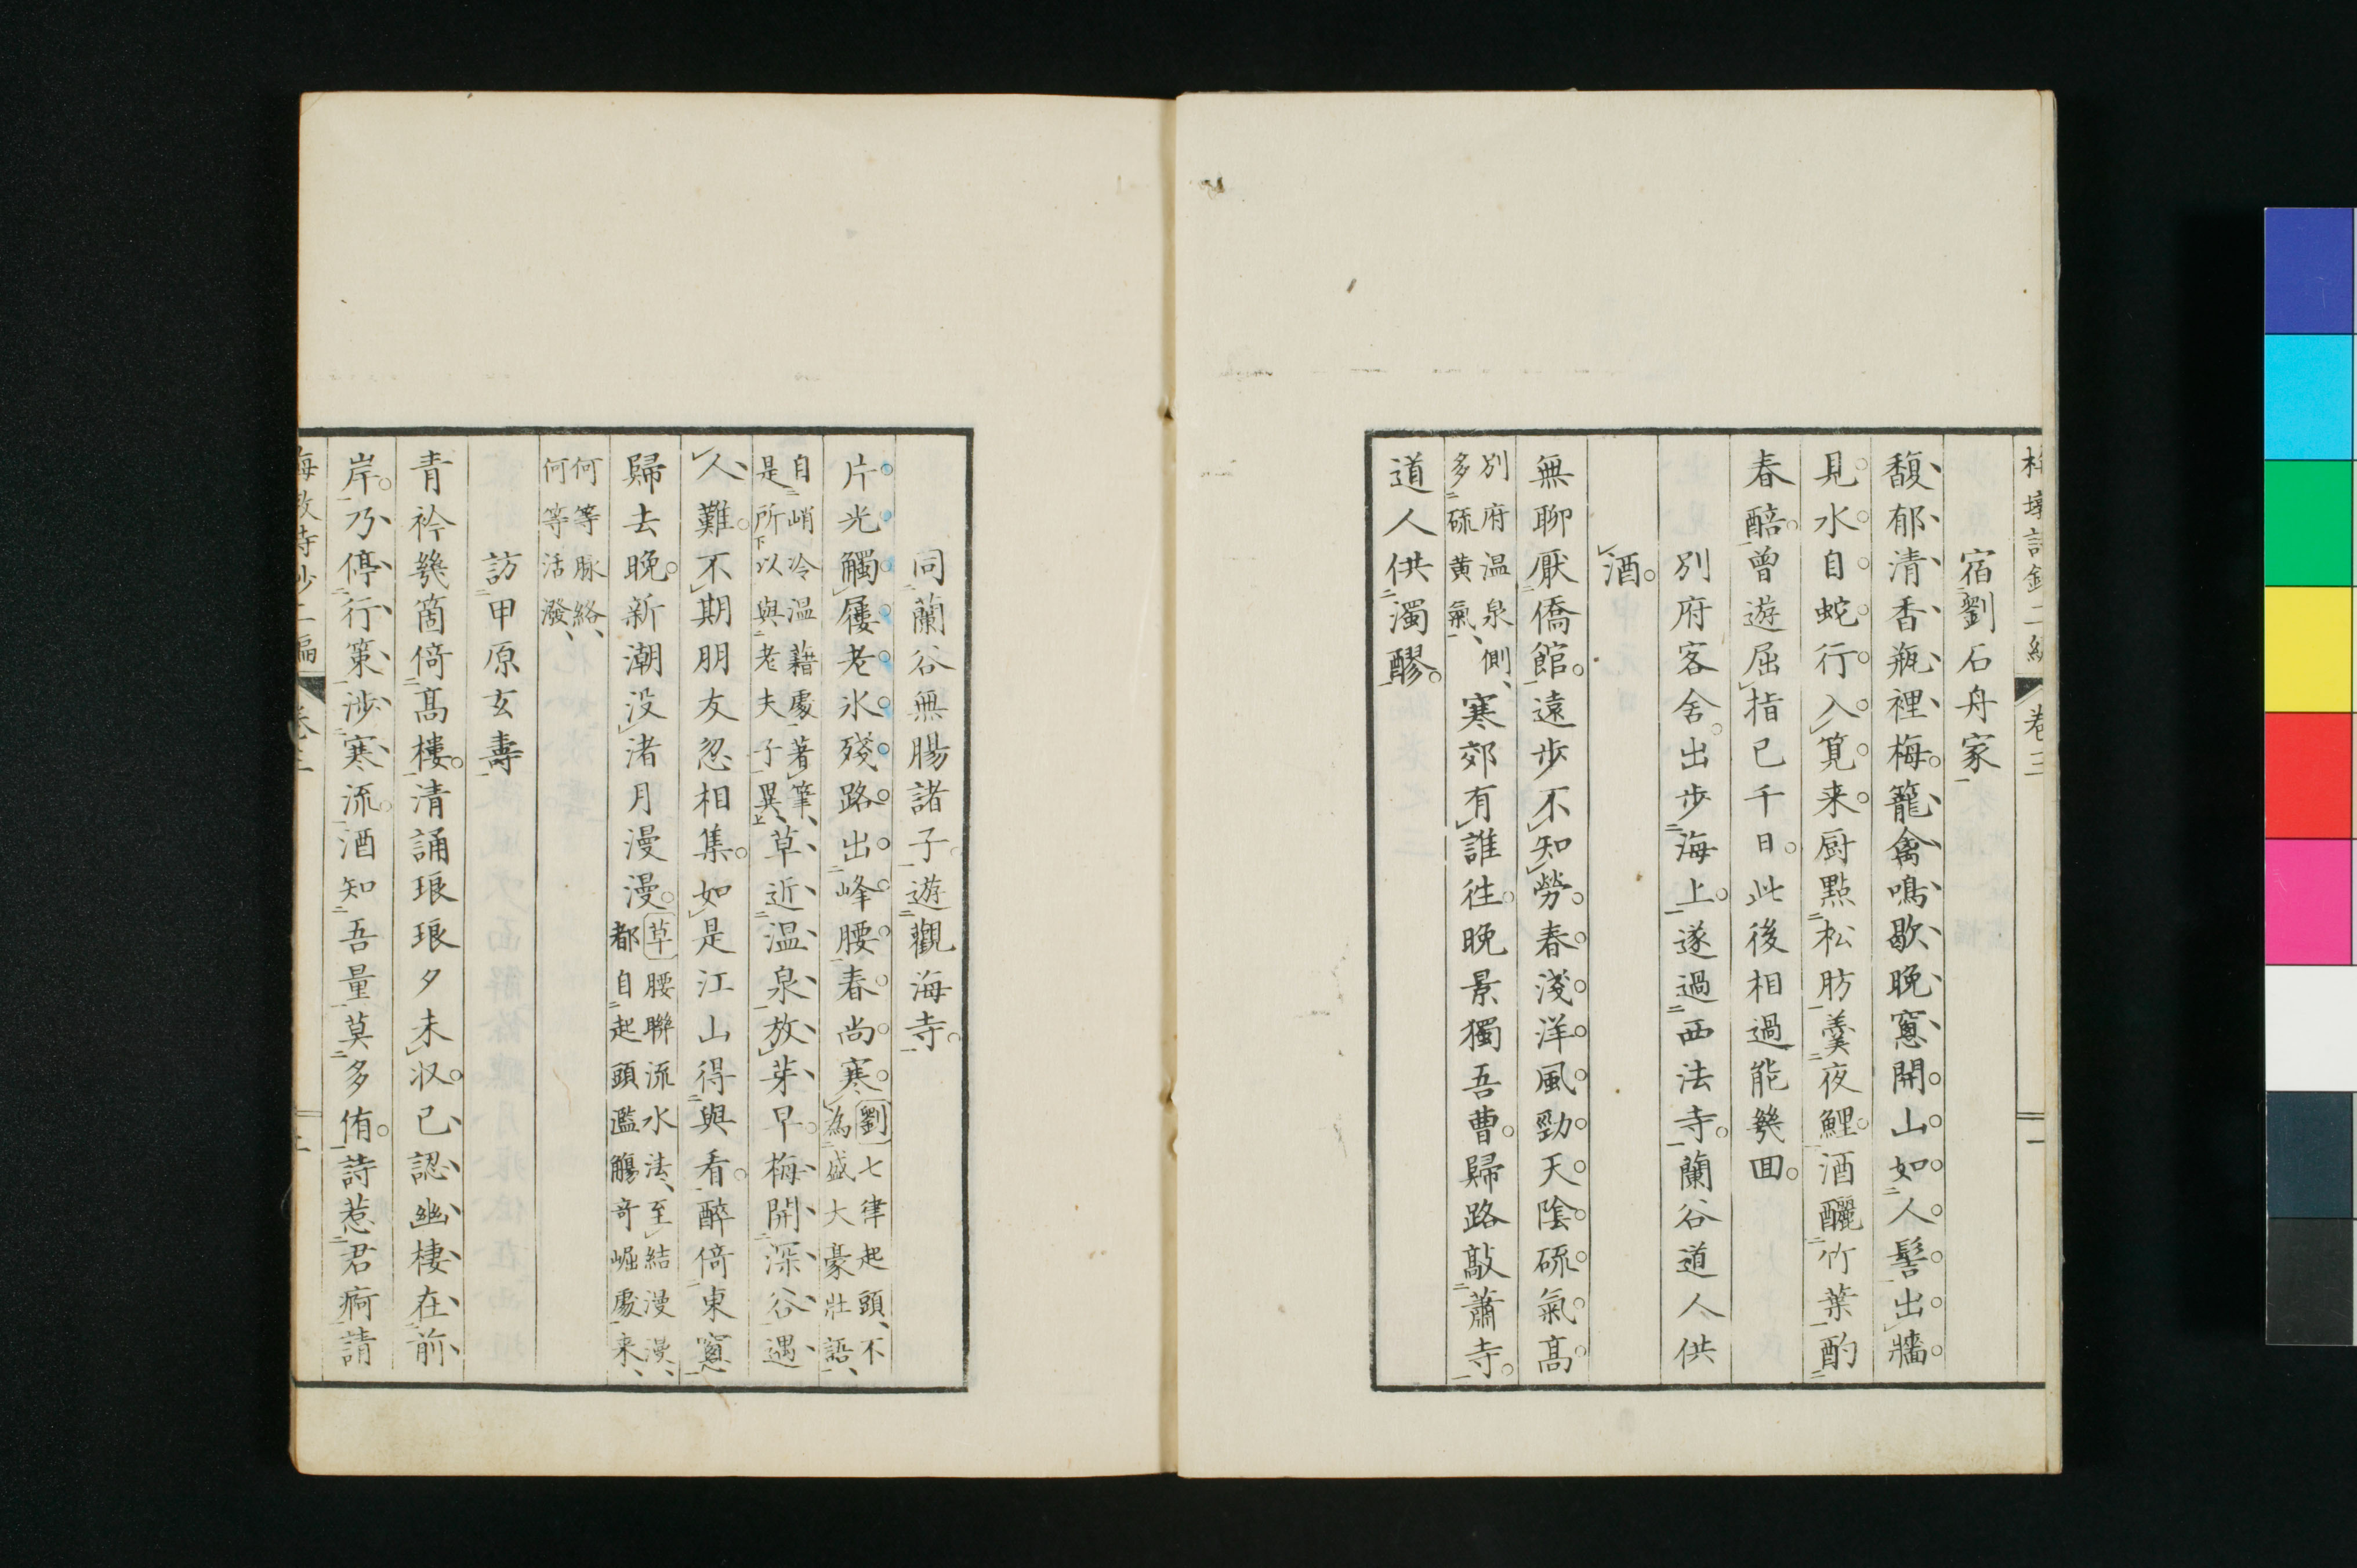 宿劉石舟家
馥郁清香瓶裡梅。籠禽鳴歇晚窻開。山如人髻出牆
見。水自蛇行入筧来。厨點松肪羮夜鯉。酒釃竹葉酌
春醅。曾遊屈指已千日。此後相過能幾囬。
別府客舍。出步海上。遂過西法寺。蘭谷道人供
酒。
無聊厭僑館。遠步不知勞。春淺洋風勁。天陰硫氣高。
別府温泉側、
多硫黄氣、
寒郊有誰徃。晚景獨吾曹。歸路敲蕭寺。
道人供濁醪。
卷三
一
同蘭谷無腸諸子。遊觀海寺。
片光觸屨老氷殘。路出峰腰春尚寒。
劉七律起頭、不
為盛大豪壮語、
自峭冷温藉處著筆、
是所以與老夫子異、
草近温泉放芽早。梅開深谷遇
人難。不期朋友忽相集。如是江山得與看。醉倚東窻
歸去晚。新潮没渚月漫漫。
草腰聯流水法、至結漫漫、
都自起頭濫觴竒崛處来、
何等脉絡、
何等活潑、
訪甲原玄壽
青衿幾箇倚髙樓。清誦琅琅夕未収。已認幽棲在前
岸。乃停行策渉寒流。酒知吾量莫多侑。詩惹君痾請
卷三